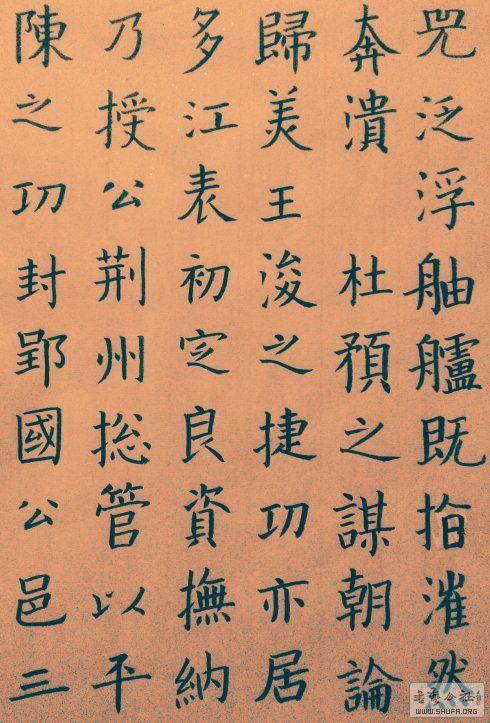 兕泛浮舳艫既指漼然
奔潰 杜預之謀朝論
歸美王浚之捷功亦居
多江表初定良資撫納
乃授公荆州揔管以平
陳之功封郢國公邑三
WWW.SHUFA.ORG